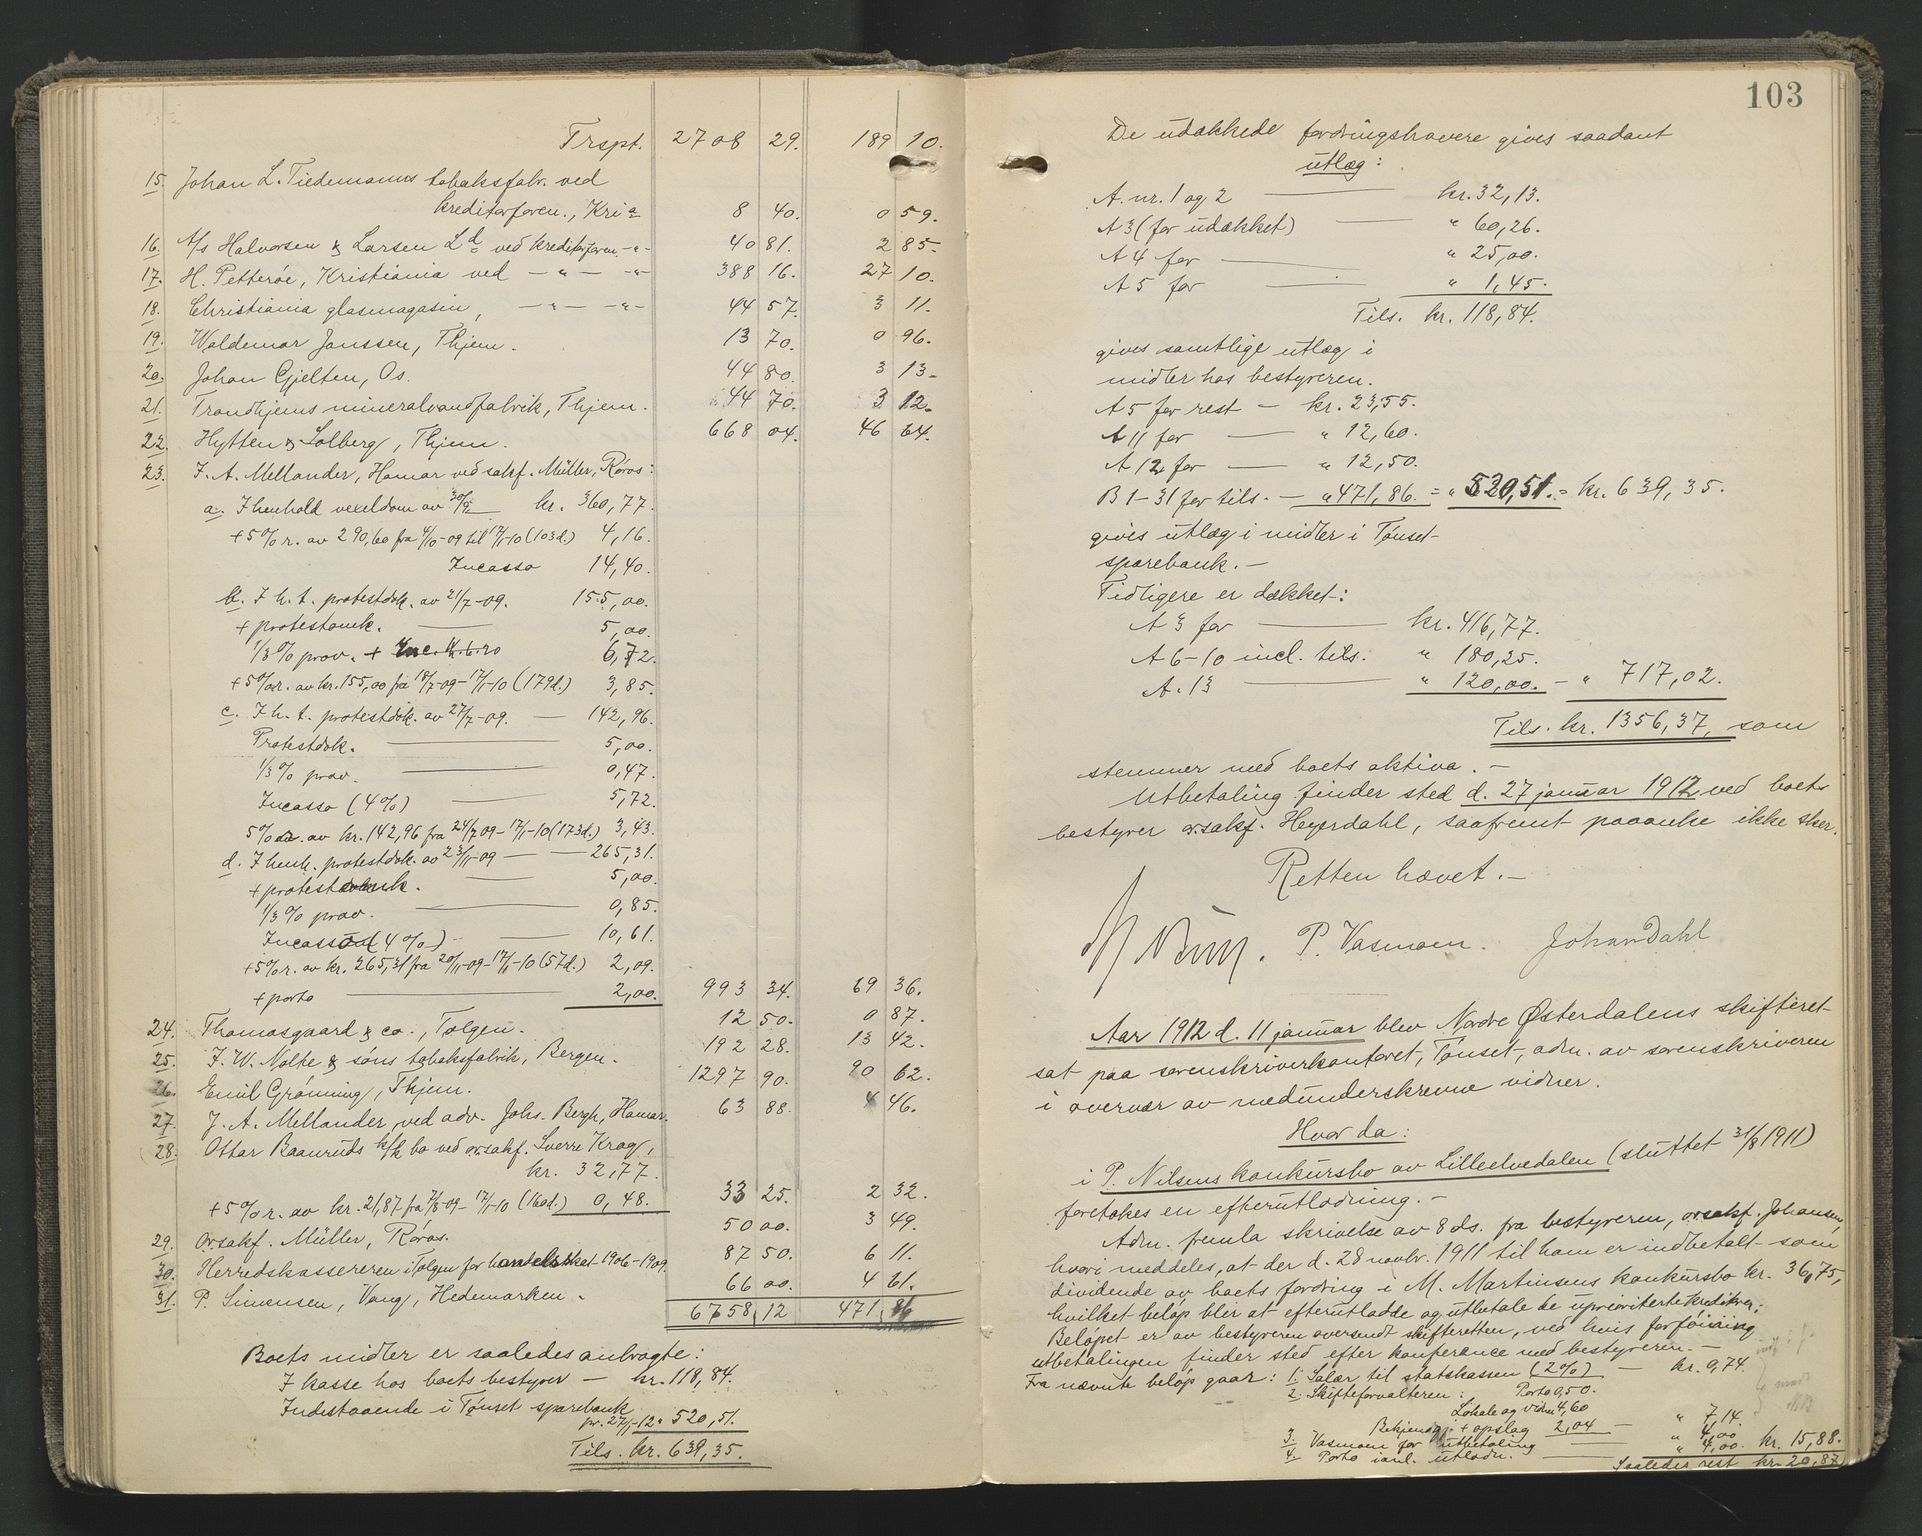 Trspt. 2708 29. 189 10.
15. Johan L. Tiedemanns tobaksfabr. ved
kreditorforen., Kria 8 40. 0 59.
16. A/s Halvorsen & Larsen Ld ved kreditorforen. -"- 40 81. 2 85.
17. H. Petterøe, Kristiania ved — " — -"- 388 16. 27 10.
18. Christiania glasmagasin, — " — -"- 44 57. 3 11.
19. Waldemar Janssen, Thjem. 13 70. 0 96.
20. Johan Gjelten, Os. 44 80. 3 13.
21. Trondhjems mineralvandfabrik, Thjem. 44 70. 3 12.
22. Hytten & Solberg, Thjem. 668 04. 46 64.
23. J. A. Mellander, Hamar ved sakf. Müller, Røros:
a. I henhold vexeldom av 30/9 kr. 360,77.
+ 5% r. av 290,60 fra 4/10-09 til 17/1-10 (103d.) 4,16.
Incasso 14,40.
b. I h. t. protestdok. av 21/7-09. 155,00.
+ protestomk. 5,00.
1/3% prov. + Inc. 6,72.
+ 5% r. av kr. 155,00 fra 18/7-09 - 17/1-10 (179d.) 3,85.
c. I h. t. protestdok. av 27/7-09. — 142,96.
Protestdok. 5,00.
1/3% prov. 0,47.
Incasso (4%) 5,72.
5% r. av kr. 142,96 fra 24/7 09 - 17/1-10 (173d.) 3,43.
d. I henh. protestdok. av 23/11-09 — 265,31.
+ protestomk. 5,00.
1/3% prov. 0,85.
Incasso (4%) 10,61.
+ 5% r. av kr. 265,31 fra 20/11-09 - 17/1-10 (57d.) 2,09.
+ porto 2,00. 993 34. 69 36.
24. Thomasgaard & co., Tolgen. 12 50. 0 87.
25. J. W. Nolte & søns tobaksfabrik, Bergen. 192 28. 13 42.
26. Emil Grønning, Thjem. 1297 90. 90 62.
27. J. A. Mellander, ved adv. Johs. Bergh, Hamar. 63 88. 4 46.
28. Ottar Baanruds k/k bo ved o.r.sakf. Sverre Krag,
kr. 32,77.
+ 5% r. av kr. 21,87 fra 7/8-09 - 17/1-10 (160d.) 0,48. 33 25. 2 32.
29. Orsakf. Müller, Røros. 50 00. 3 49.
30. Herredskassereren i Tolgen for handelsskat 1906-1909. 87 50. 6 11.
31. P. Simensen, Vang, Hedemarken. 66 00. 4 61.
6758,12 471,86
Boets midler er saaledes anbragte:
I kasse hos boets bestyrer — kr. 118,84.
Indestaaende i Tønset sparebank
pr. 27/1-12 " 520,51.
Tils. kr. 639,35.
103
De udækkede fordringshavere gives saadant
utlæg:
A. nr. 1 og 2 — kr. 32,13.
A 3 (for udækket) — " 60,26.
A 4 for — " 25,00.
A 5 for — " 1,45.
Tils. kr. 118,84.
gives samtlige utlæg i
midler hos bestyreren.
A 5 for rest — kr. 23,55.
A 11 for — " 12,60.
A 12 for — " 12,50.
B 1-31 for tils. — " 471,86. = " 520,51. = kr. 639,35.
gives utlæg i midler i Tønset
sparebank. —
Tidligere er dækket:
A 3 for — kr. 416,77.
A 6-10 incl. tils. " 180,25.
A. 13 — " 120,00. — " 717,02.
Tils. kr. 1356,37, som
stemmer med boets aktiva. —
Utbetaling finder sted d. 27 januar 1912 ved boets
bestyrer o.r.sakf. Heyerdahl, saafremt paaanke ikke sker.
Retten hævet. —
P. Vasmoen. Johan Dahl
Aar 1912 d. 11 januar blev Nordre Østerdalens skifteret
sat paa sorenskriverkontoret, Tønset, adm. av sorenskriveren
i overvær av medunderskrevne vidner.
Hvor da:
i P. Nilsens konkursbo av Lilleelvedalen (sluttet 31/8 1911)
foretokes en efterutlodning. —
Adm. fremla skrivelse av 8 ds. fra bestyreren, o.r.sakf. Johansen,
hvori meddeles, at der d. 28 novbr. 1911 til ham er indbetalt som
dividende av boets fordring i M. Martinsens konkursbo kr. 36,75,
hvilket beløp blir at efterutlodde og utbetale de uprioriterte kreditorer.
Beløpet er av bestyreren oversendt skifteretten, ved hvis forføining
utbetalingen finder sted efter konferance med bestyreren. —
Fra nævnte beløp gaar: 1. Salær til statskassen (2%) — kr. 0,74.
2. Skifteforvalteren: Porto 0,50.
Lokale og vidn. 4,60
Bekjendtg. + opslag 2,04 — " 7,14.
3. Vasmoen for utbetaling — " 4,00
4. Porto ianl. utlodn. — " 4,00. kr. 15,88.
Saaledes rest kr. 20,87